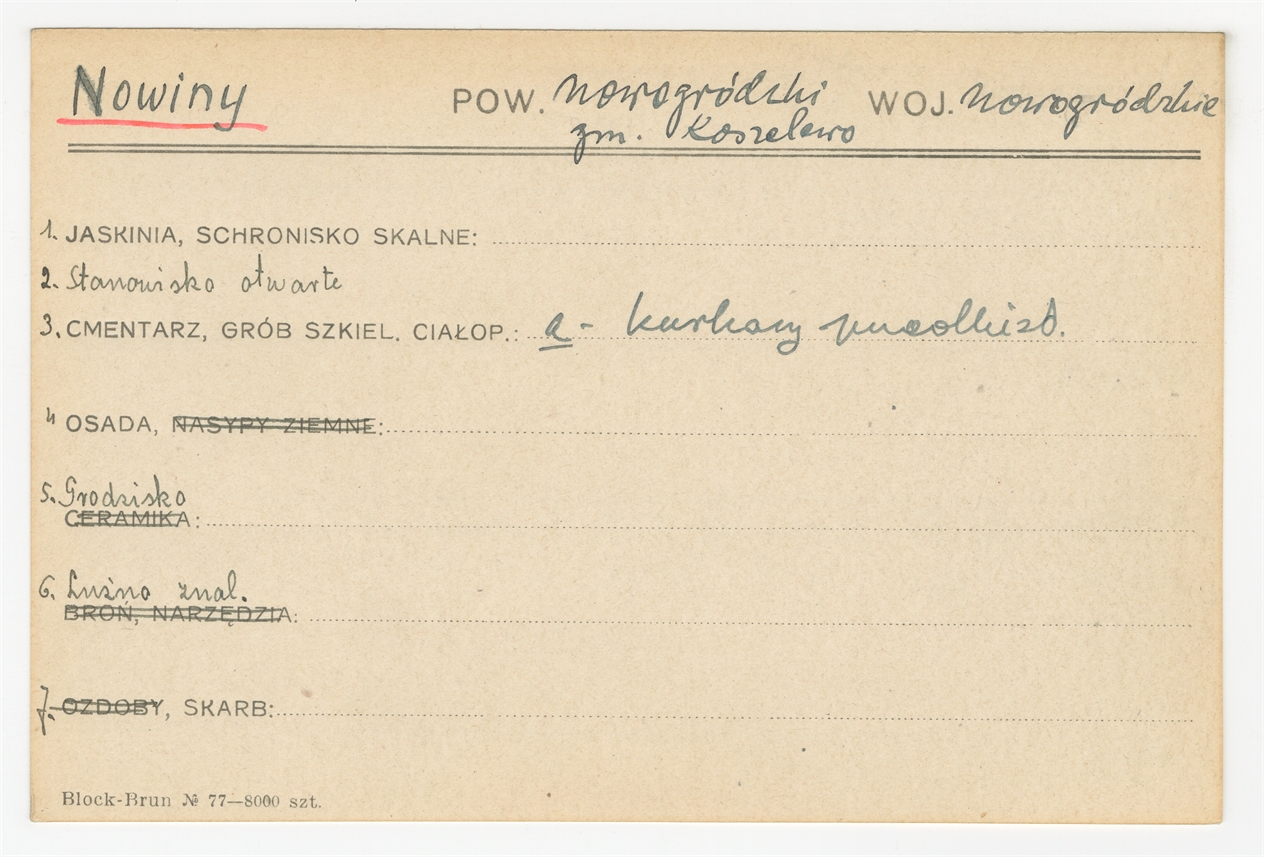 Nowiny POW. nowogródzki WOJ. nowogródzkie
gm. Koszelewo
1. JASKINIA, SCHRONISKO SKALNE:
2. Stanowisko otwarte
3. CMENTARZ, GRÓB SZKIEL. CIAŁOP.: a - kurhany
4 OSADA, NASYPY ZIEMNE:
5. Grodzisko
CERAMIKA:
6. Luźno znal.
BROŃ, NARZĘDZIA:
7. OZDOBY, SKARB:
Block-Brun № 77—8000 szt.